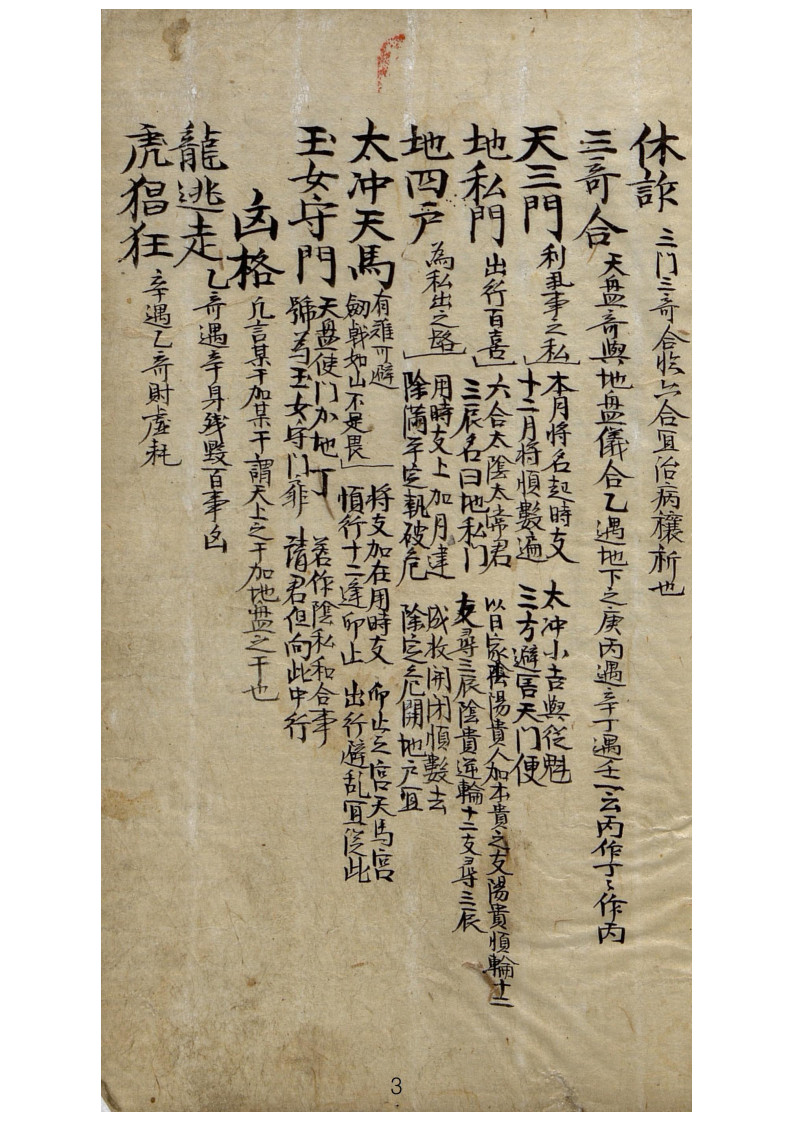 休詐 三門三奇合临六合宜治病禳祈也
三奇合 天盘奇與地盘儀合乙遇地下之庚丙遇辛丁遇壬一云丙作丁丁作丙
天三門 利私事之 本月將名起時支 太冲小吉與從魁
十二月將順數遍 三方避害天门便
地私門 出行百喜 六合太陰太常君 以日家陰陽貴人加本貴之支陽貴順輪十二
三辰名曰地私门 支尋三辰陰貴逆輪十二支尋三辰
地四户 為私出之路 用時支上加月建 成收開闭順數去
除滿平定執破危 除定危開地户宜
太冲天馬 有难可避 將支加在用時支 卯止之宮天馬宮
劔戟如山不足畏 順行十二逢卯止 出行避乱宜從此
玉女守門 天盘使门加地丁 若作陰私和合事
號為玉女守门 請君但向此中行
凶格 凡言某干加某干謂天上之干加地盘之干也
龍逃走 乙奇遇辛身残毀百事凶
虎猖狂 辛遇乙奇財虚耗
3